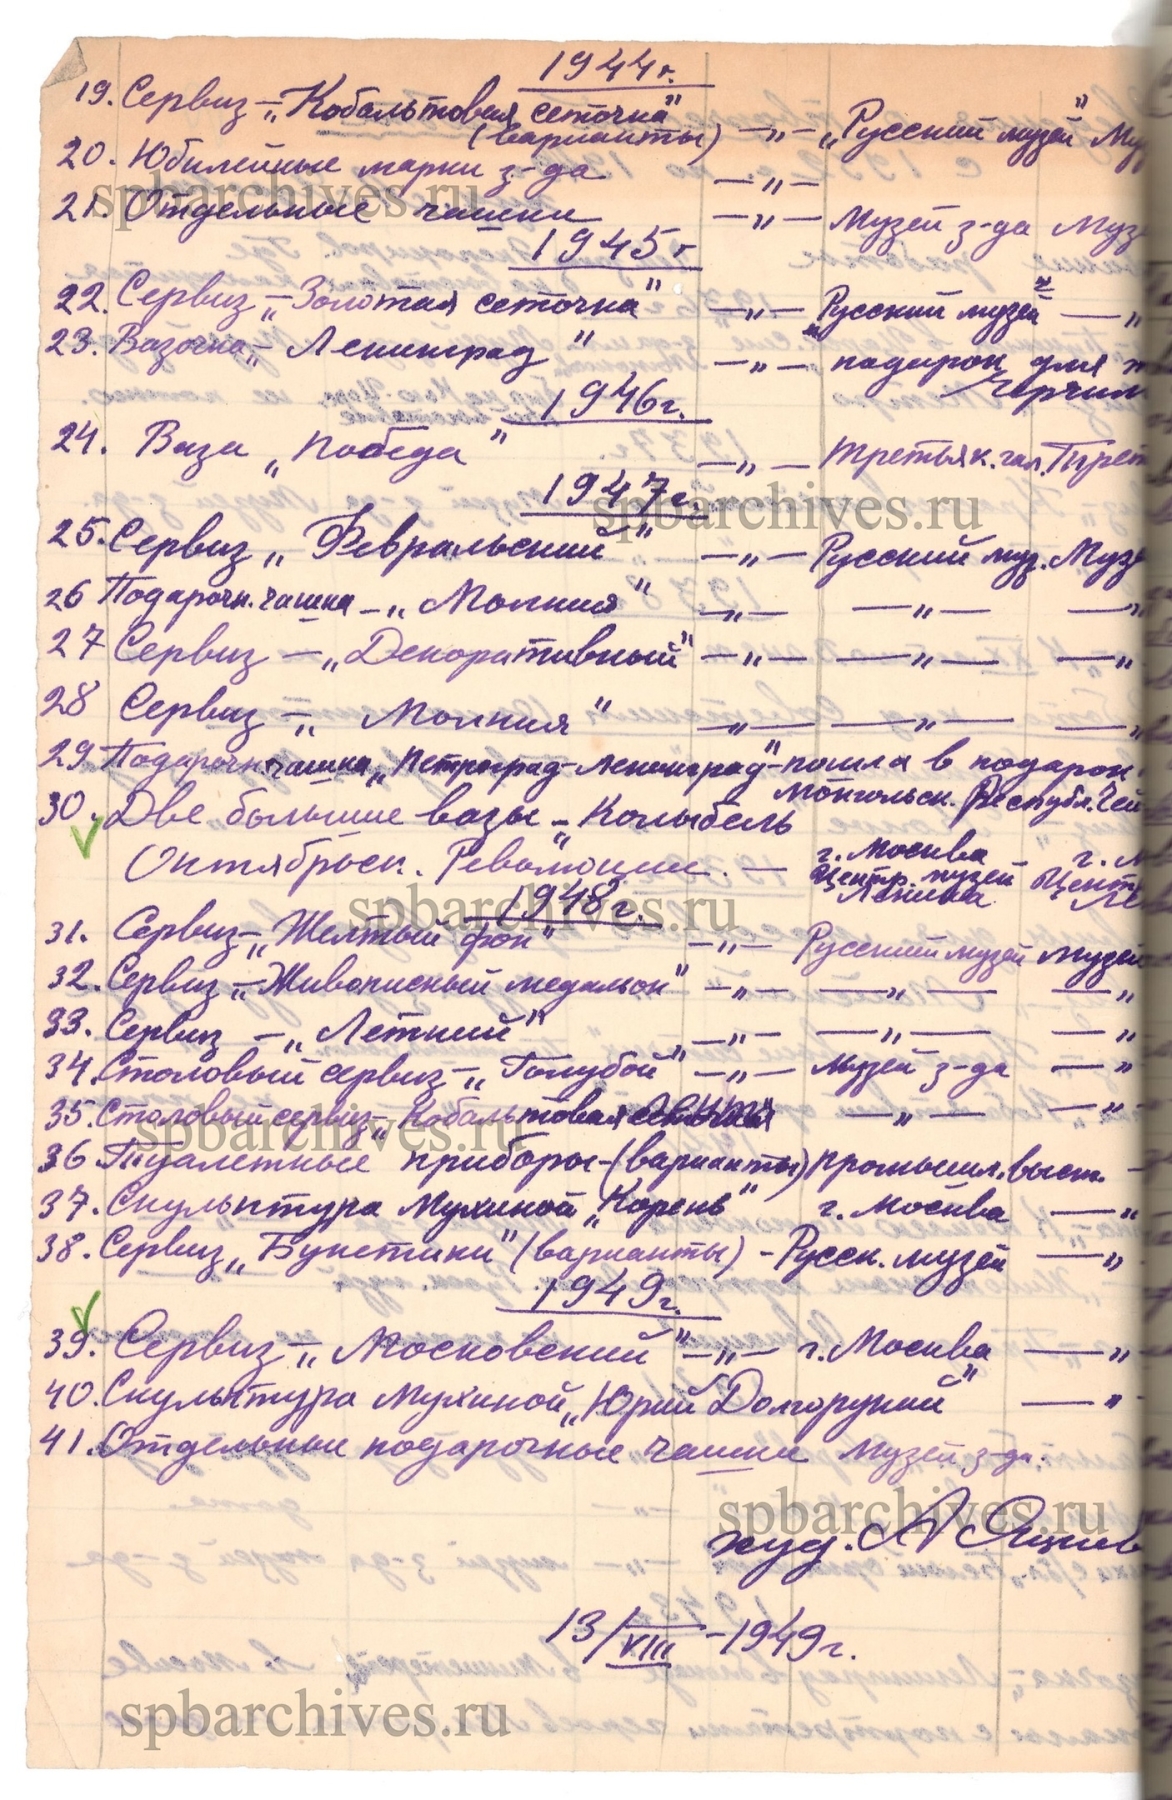 1944 г.
19. Сервиз - „Кобальтовая сеточка"
(варианты) - „ - „Русский музей"
20. Юбилейные марки з-да - „ -
21. Отдельные чашки - „ - Музей з-да
1945 г
22. Сервиз - „Золотая сеточка" - „ - „Русский музей" - „
23. Вазочка - „Ленинград" - „ - подарок для
1946 г.
24. Ваза „Победа" - „ - Третьяк. гал.
1947 г.
25. Сервиз „Февральский" - „ - Русский муз.
26 Подарочн. чашка - „Молния" - „ - - „ - - „
27 Сервиз - „Декоративный" - „ - - „ - - „
28 Сервиз - „Молния" - „ - - „ - - „
29 Подарочн. чашка „Петроград - Ленинград" - пошла в подарок
Монгольск. Республ.
30. Две большие вазы - „Колыбель
Октябрьск. Революции. - г. Москва
Центр. музей
Ленина
1948 г.
31. Сервиз - „Желтый фон" - „ - Русский музей Музей
32. Сервиз - „Живописный медальон" - „ - - „ - - „
33. Сервиз - „Летний" - „ - - „ - - „
34. Столовый сервиз - „Голубой" - „ - музей з-да - „
35. Столовый сервиз - „Кобальтовая - „ - - „
36 Туалетные приборы - (варианты) промышл. выст. -
37. Скульптура Мухиной „Корень" г. Москва - „
38. Сервиз „Букетики" (варианты) - Русск. музей - „
1949 г.
39. Сервиз - „Московский" - „ - г. Москва - „
40. Скульптура Мухиной „Юрий Долгорукий" - „
41. Отдельные подарочные чашки музей з-да.
худ. А Яцкев
13/VIII - 1949 г.
spbarchives.ru
spbarchives.ru
spbarchives.ru
spbarchives.ru
spbarchives.ru
spbarchives.ru